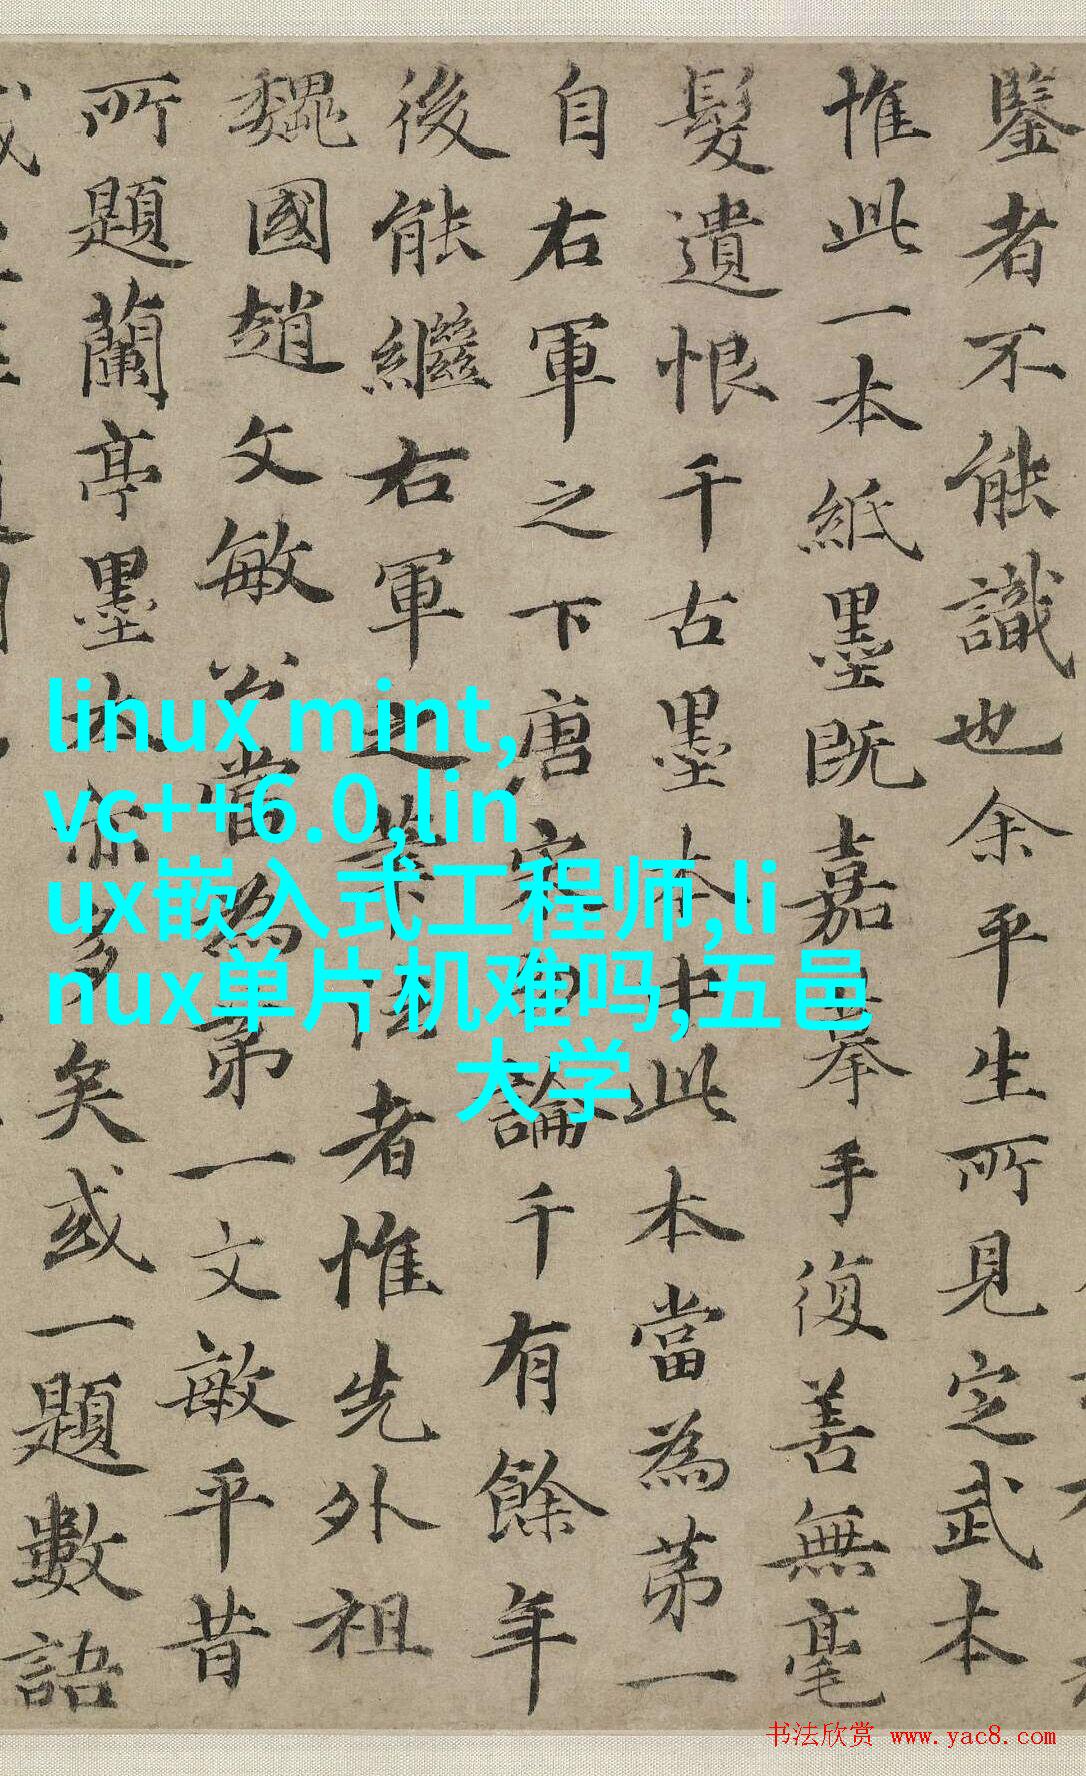 鑒者不能識也余平生所見定武本
惟此一本紙墨既嘉摹手復善無毫
髮遺恨千古墨本中此本當為苐一
自右軍之下唐宋
論千有餘年
後能繼右軍之筆法者惟先外祖
魏國趙文敏公當為弟一文敏平昔
所題蘭亭墨本亦多矣或一題數語
linux mint,
vc++6.0,lin
ux嵌入式工程师,li
nux单片机难吗,五邑
大学
书法欣赏 www.yac8.com